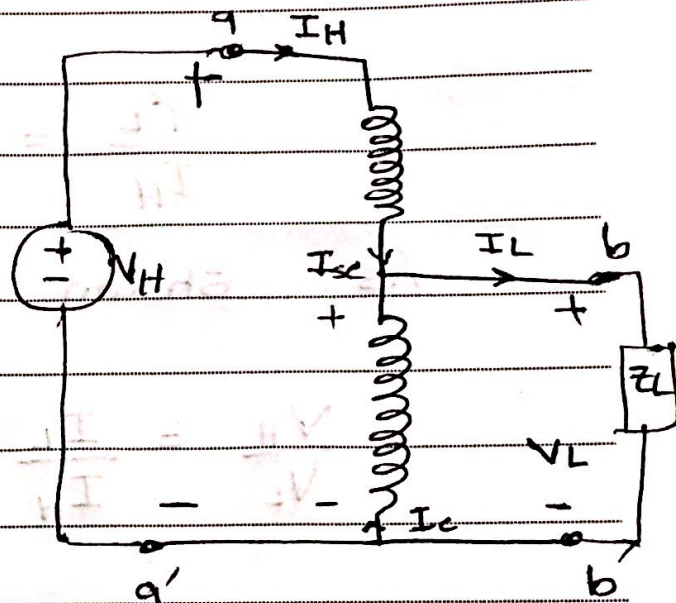 a I_H
+
+
-
V_H
I_se
I_L
b
+
+
Z_L
V_L
-
-
I_c
-
a'
b'